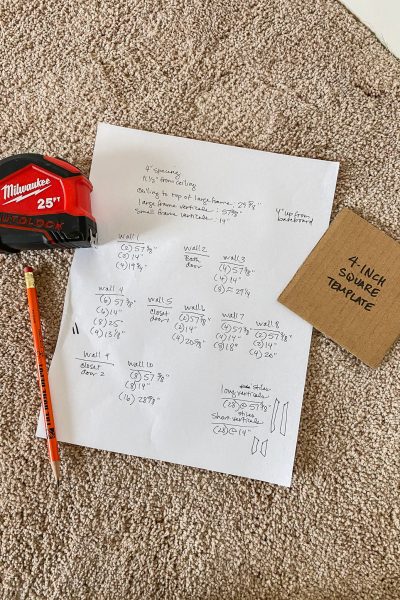 4" spacing
4 1/2" from ceiling
ceiling to top of large frame: 29 7/8"
large frame verticals: 57 7/8"
small frame verticals: 14"
4" up from
baseboard
Milwaukee
25FT
4-INCH
SQUARE
TEMPLATE
wall 1
(2) 57 7/8"
(2) 14"
(4) 19 7/8"
wall 2
Bath
door
wall 3
(4) 57 7/8"
(4) 14"
wall 4
(6) 57 7/8"
(6) 14"
(8) 25"
(4) 15 7/8"
wall 5
closet
door
wall 6
(2) 57 7/8"
(2) 14"
(4) 20 7/8"
wall 7
(4) 57 7/8"
(4) 14"
(8) 18"
wall 8
(2) 57 7/8"
(2) 14"
(4) 20"
wall 9
closet
door 2
wall 10
(8) 57 7/8"
(8) 14"
(16) 28 7/8"
stiles
long verticals
(28) @ 57 7/8"
stiles
short verticals
(28) @ 14"